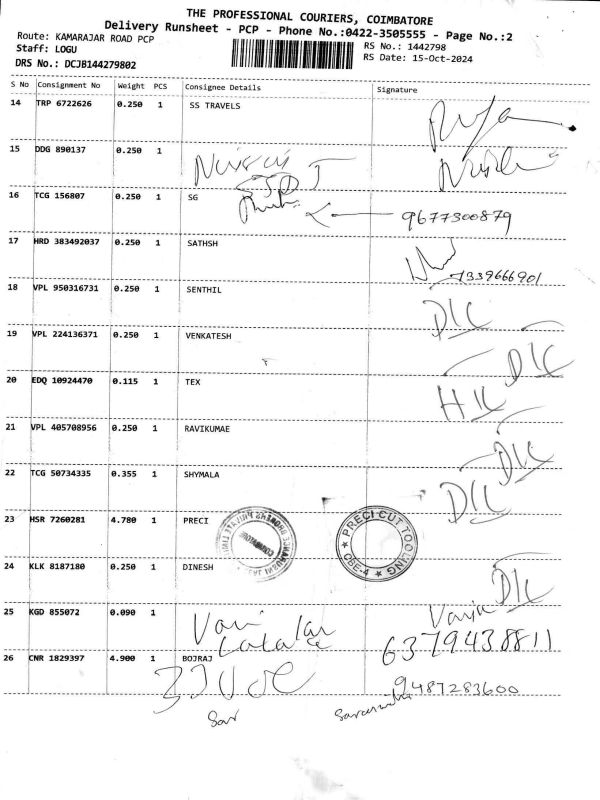 THE PROFESSIONAL COURIERS, COIMBATORE
Delivery Runsheet - PCP - Phone No.:0422-3505555 - Page No.:2
Route: KAMARAJAR ROAD PCP
RS No.: 1442798
Staff: LOGU
RS Date: 15-Oct-2024
DRS No.: DCJB144279802
S No Consignment No Weight PCS Consignee Details Signature
14 TRP 6722626 0.250 1 SS TRAVELS
15 DDG 890137 0.250 1
16 TCG 156807 0.250 1 SG
9677300879
17 HRD 383492037 0.250 1 SATHSH
7339666901
18 VPL 950316731 0.250 1 SENTHIL
DLC
19 VPL 224136371 0.250 1 VENKATESH
DLC
20 EDQ 10924470 0.115 1 TEX
21 VPL 405708956 0.250 1 RAVIKUMAE
DLC
22 TCG 50734335 0.355 1 SHYMALA
DLC
23 HSR 7260281 4.780 1 PRECI
PRECI CUT TOOLING
CBE-4
COIMBATORE
24 KLK 8187180 0.250 1 DINESH
DLC
25 KGD 855072 0.090 1
6379438811
26 CNR 1829397 4.900 1 BOJRAJ
9487283600
Sar